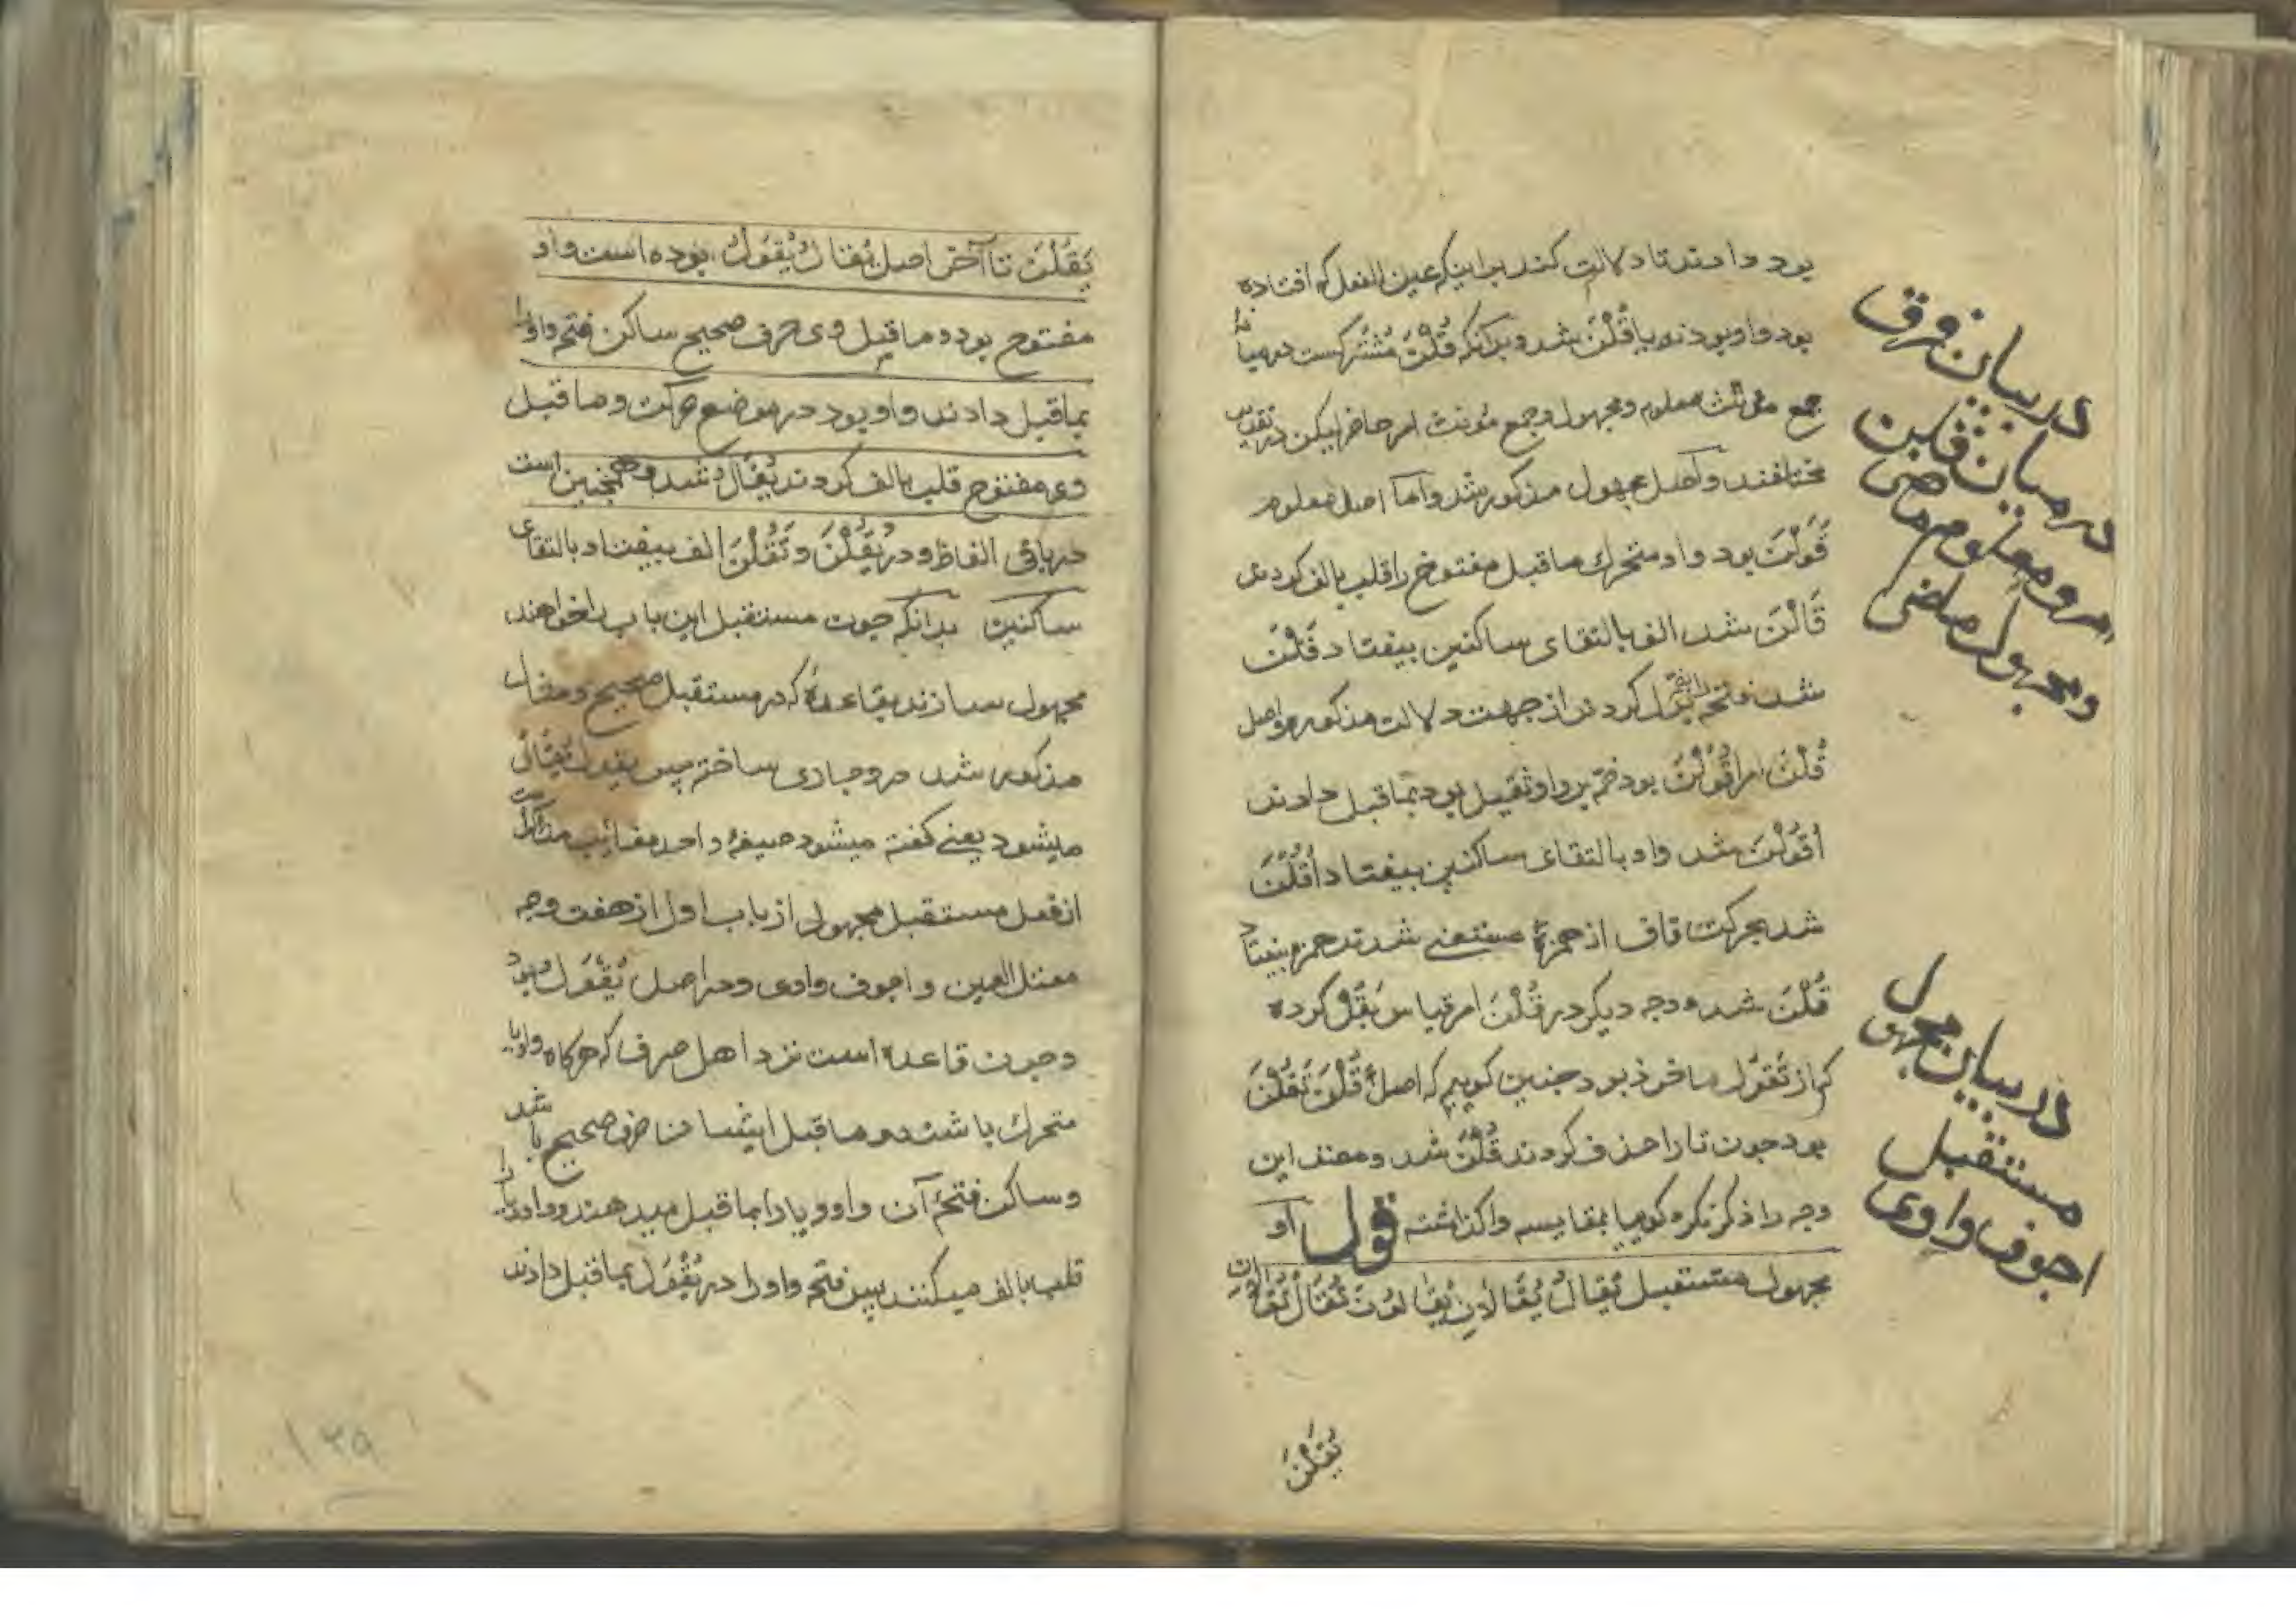 بود دادند تا دلالت کند براینکه عین الفعل که افتاده
بود واو بود نه یا قُلْنَ شد و بدانکه قُلْنَ مشترکست در میان
جمع مؤنث معلوم و مجهول و جمع مؤنث امر حاضر لیکن در تقدیر
مختلفند و اصل مجهول مذکور شد و اما اصل معلوم
قَوَلْنَ بود واو متحرك ماقبل مفتوح را قلب بالف کردند
قَالْنَ شد الف بالتقای ساکنین بیفتاد قَلْنَ
شد فتحه را بضم بدل کردند از جهت دلالت مذکوره و اصل
قُلْنَ امر اُقْوُلْنَ بود ضمه بر واو ثقیل بود بماقبل دادند
اُقُوْلْنَ شد واو بالتقای ساکنین بیفتاد اُقُلْنَ
شد بحرکت قاف از همزهٔ مستغنی شدند همزه بیفتاد
قُلْنَ شد و وجه دیکر در قُلْنَ امر قیاس بقُلْ کرده
که از تَقُوْلُ ماخوذ بود جنین کوییم که اصل قُلْنَ تَقُلْنَ
بود جون تا را حذف کردند قُلْنَ شد و مصنف این
وجه را ذکر نکرده کوییا بمقایسه واکذاشته قول او
مجهول مستقبل یُقَالُ یُقَالَانِ یُقَالُونَ تُقَالُ تُقَالَانِ
یُقَلْنَ
در بیان فرق
در میان قلن
امر و معلوم ماضی
و مجهول ماضی
در بیان مجهول
مستقبل
اجوف واوی
یُقَلْنَ تا آخر اصل یُقَالُ یُقْوَلُ بوده است واو
مفتوح بود و ماقبل وی حرف صحیح ساکن فتحه واو را
بماقبل دادند واو بود در موضع حرکت و ماقبل
وی مفتوح قلب بالف کردند یُقَالُ شد و همجنین است
در باقی الفاظ و در یُقَلْنَ و تُقَلْنَ الف بیفتاد بالتقای
ساکنین بدانکه جون مستقبل این باب را خواهند
مجهول سازند بقاعدهٔ که در مستقبل صحیح و مثال
مذکور شد در وجاری ساخته پس یقول یُقَالُ
میشود یعنی کفته میشود صیغهٔ واحد مغائب مذکر است
از فعل مستقبل مجهول از باب اول از هفت وجه
معتل العین و اجوف واوی و در اصل یُقْوَلُ بود
و جون قاعده است نزد اهل صرف که هرکاه واو یا
متحرك باشند و ماقبل ایشان حرف صحیح باشد
و ساکن فتحهٔ آن واو و یا را بماقبل میدهند و واو و یا را
قلب بالف میکنند پس فتحه واو را در یُقْوَلُ بماقبل دادند
۱۳۹